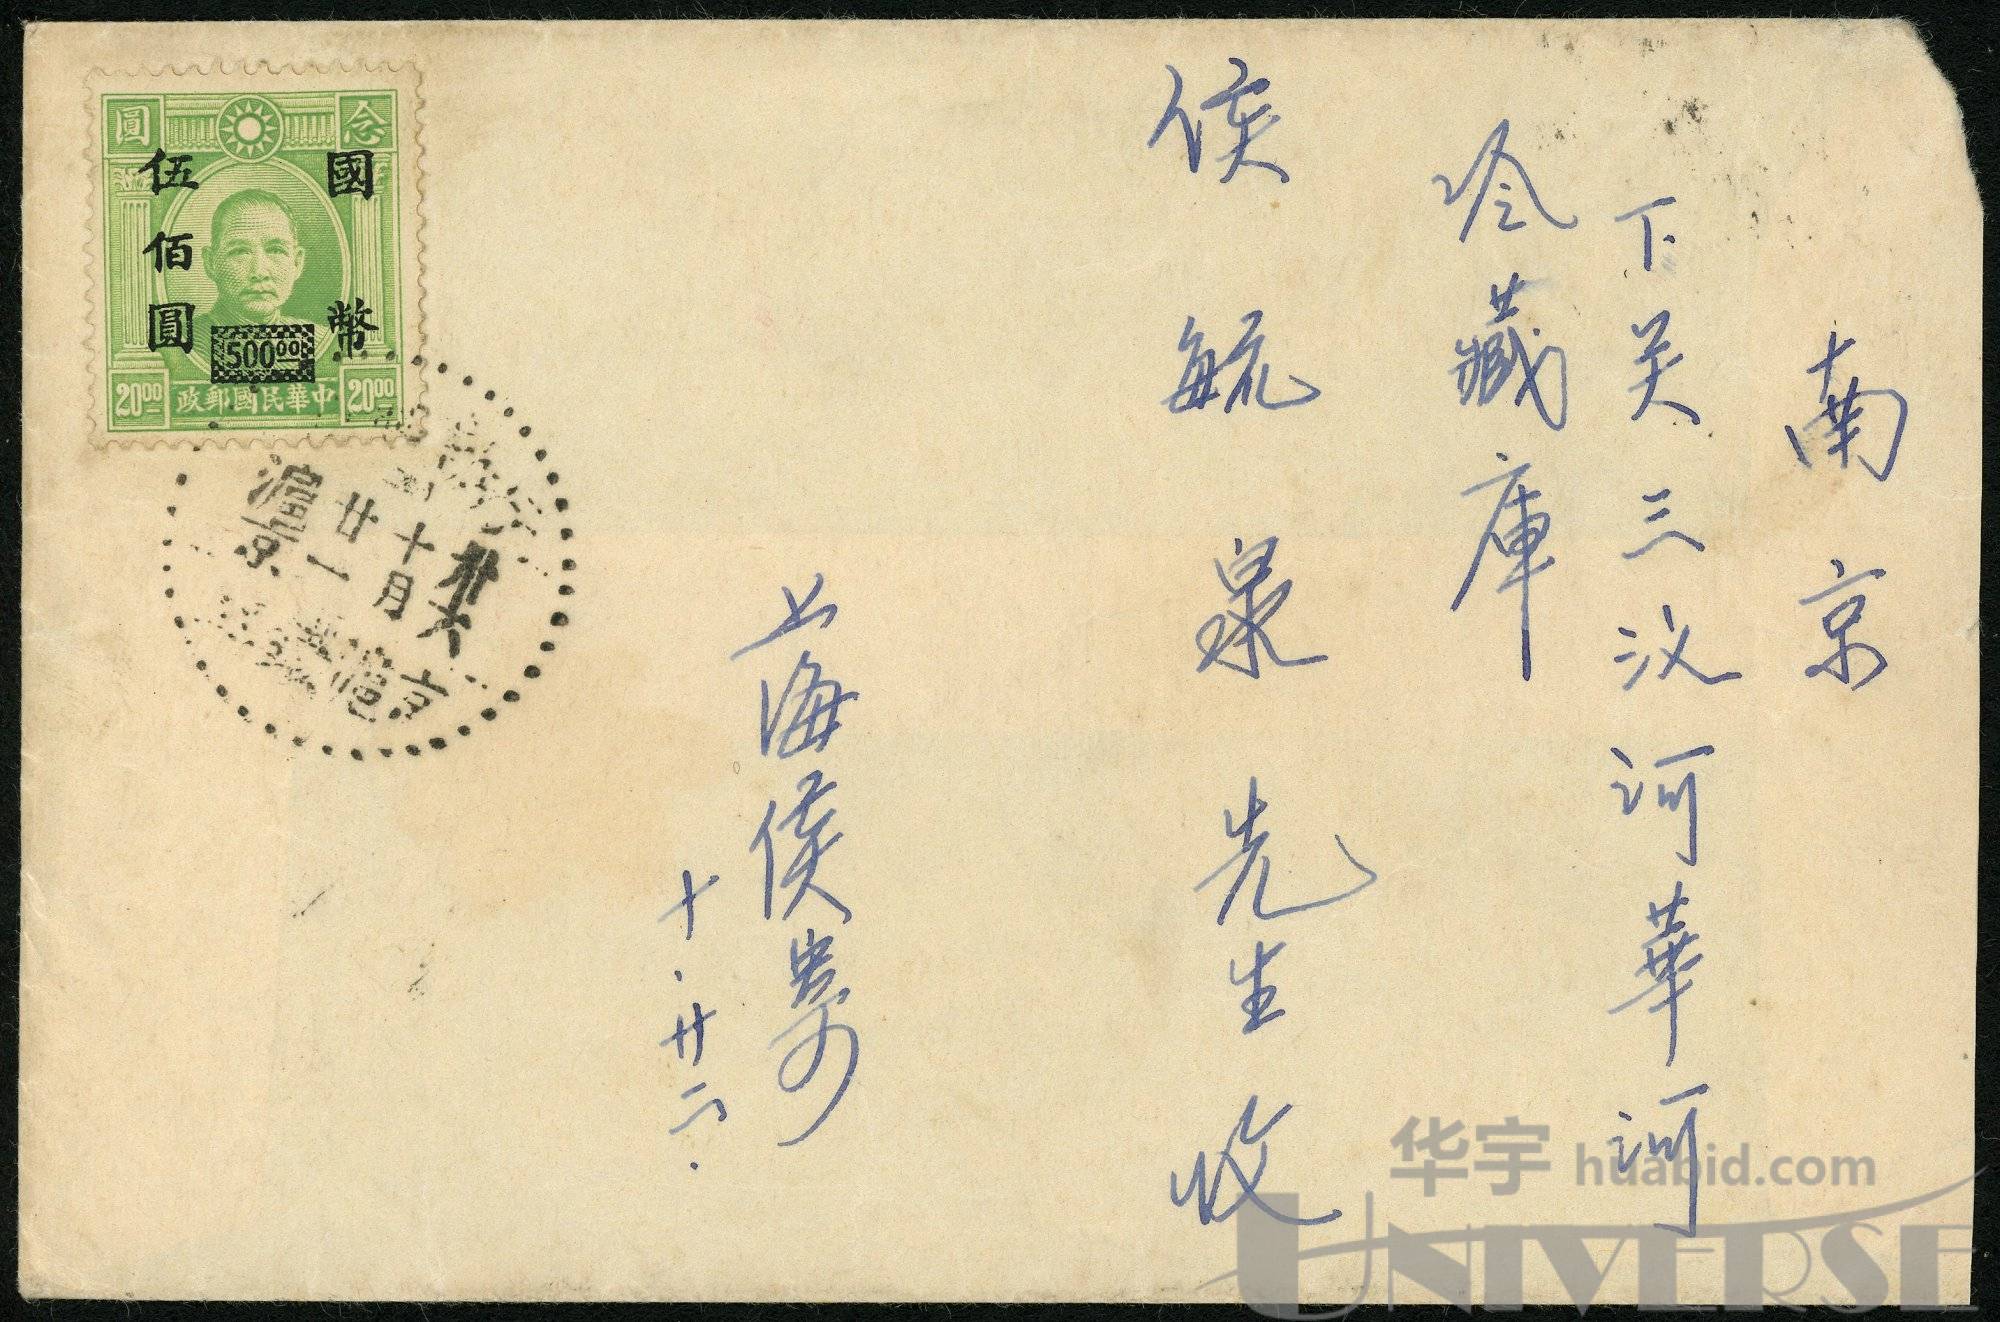 南京
下关三汊河河華河
冷藏庫
侯毓泉先生收
上海侯寄
十.廿二.
念圓
國幣
伍佰圓
500.00
20.00 中華民國郵政 20.00
滬京
廿一
十月
卅六
京滬
华宇 huabid.com
UNIVERSE